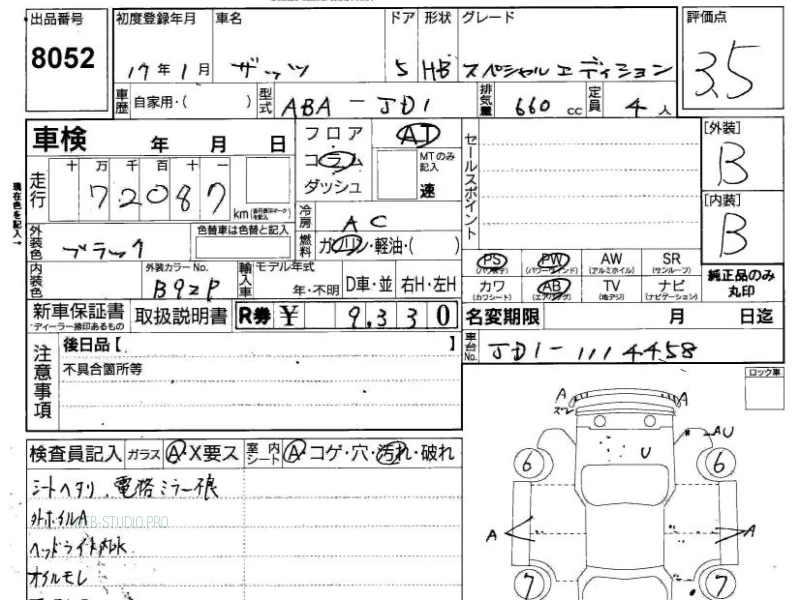 出品番号 初度登録年月 車名 ドア 形状 グレード 評価点
8052 17年1月 ザッツ 5 HB スペシャルエディション 3.5
車歴 自家用・( ) 型式 ABA-JD1 排気量 660 cc 定員 4人
車検 年 月 日 フロア AT セールスポイント [外装]
B
走行 十 万 千 百 十 一 コラム MTのみ記入
72087 km ダッシュ 速 [内装]
現在色を記入 B
外装色 ブラック 色替車は色替と記入 冷房 AC
燃料 ガソリン・軽油・( )
PS PW AW SR
(パワーウィンド) (アルミホイル) (サンルーフ)
内装色 外装カラーNo. B92P 輸入車 モデル年式 年・不明 D車・並 右H・左H
カワ AB TV ナビ 純正品のみ
(カワシート) (エアバッグ) (地デジ) (ナビゲーション) 丸印
新車保証書 取扱説明書 R券 ¥ 9,330 名変期限 月 日迄
*ディーラー捺印あるもの
注意事項 後日品【 】 車台No. JD1-1114458
不具合箇所等 ロック車
検査員記入 ガラス A・X要ス 室内シート A・コゲ・穴・汚れ・破れ
シートヘタリ、電格ミラー不良
外ホイルA
WEB-STUDIO.PRO
ヘッドライト内水
オイルモレ
A A
ズレ
U AU
6 6
A A
7 7